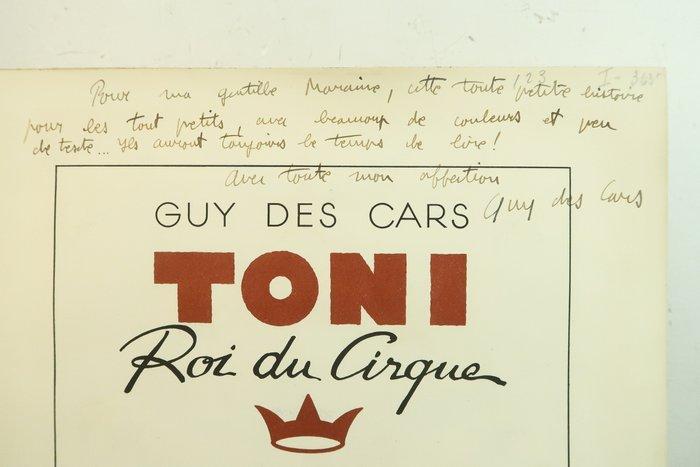 123
I - 365
Pour ma gentille Marraine, cette toute petite histoire
pour les tout petits, avec beaucoup de couleurs et peu
de texte... Ils auront toujours le temps de lire!
avec toute mon affection
Guy des Cars
GUY DES CARS
TONI
Roi du Cirque